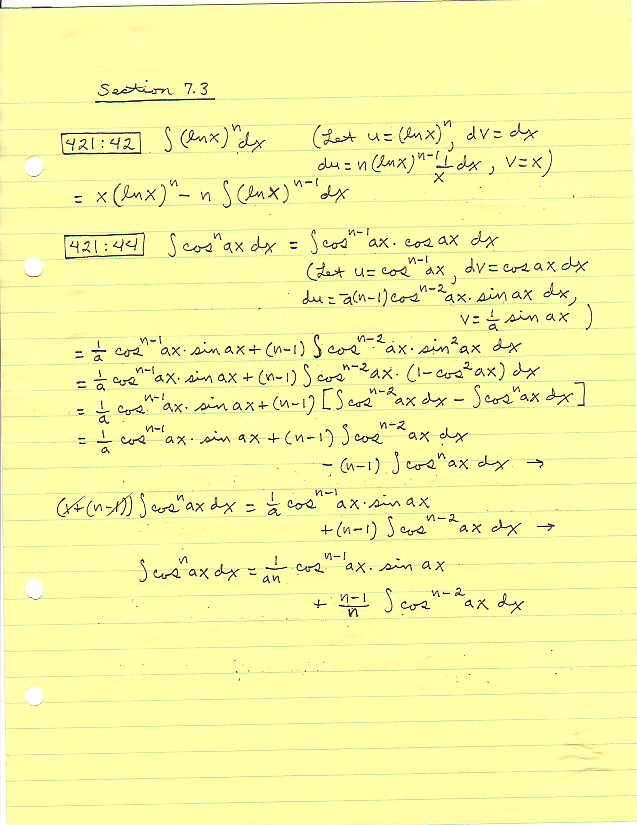 Section 7.3
421:42 ∫ (ln x)ⁿ dx (Let u = (ln x)ⁿ, dv = dx
du = n (ln x)ⁿ⁻¹ 1/x dx, v = x)
= x (ln x)ⁿ - n ∫ (ln x)ⁿ⁻¹ dx
421:44 ∫ cosⁿ ax dx = ∫ cosⁿ⁻¹ ax · cos ax dx
(Let u = cosⁿ⁻¹ ax, dv = cos ax dx
du = -a(n-1) cosⁿ⁻² ax · sin ax dx,
v = 1/a sin ax )
= 1/a cosⁿ⁻¹ ax · sin ax + (n-1) ∫ cosⁿ⁻² ax · sin² ax dx
= 1/a cosⁿ⁻¹ ax · sin ax + (n-1) ∫ cosⁿ⁻² ax · (1 - cos² ax) dx
= 1/a cosⁿ⁻¹ ax · sin ax + (n-1) [ ∫ cosⁿ⁻² ax dx - ∫ cosⁿ ax dx ]
= 1/a cosⁿ⁻¹ ax · sin ax + (n-1) ∫ cosⁿ⁻² ax dx
- (n-1) ∫ cosⁿ ax dx →
(1 + (n-1)) ∫ cosⁿ ax dx = 1/a cosⁿ⁻¹ ax · sin ax
+ (n-1) ∫ cosⁿ⁻² ax dx →
∫ cosⁿ ax dx = 1/an cosⁿ⁻¹ ax · sin ax
+ n-1/n ∫ cosⁿ⁻² ax dx